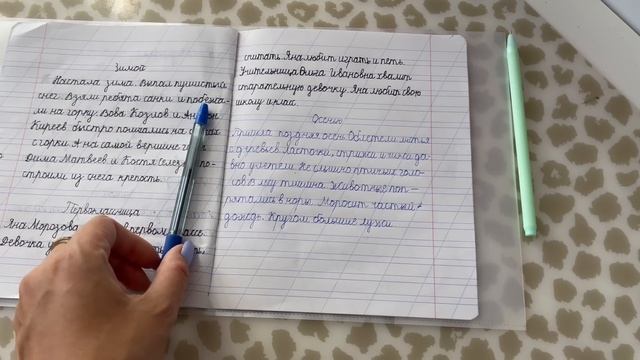 Зимой
Настала зима. Выпал пушистый
снег. Взяли ребята санки и побежа-
ли на горку. Вова Козлов и
Киреев быстро помчались на
с горки. А на самой вершине
Дима Матвеев и Костя по-
строили из снега крепость.
Первоклашница
Яна Морозова первом
Девочка
считать. Яна любит играть и петь.
Учительница Ольга Ивановна хвалит
старательную девочку. Яна любит свою
школу и класс.
Осенью
Пришла поздняя осень. Облетели листья
с деревьев. Ласточки, стрижи и
давно улетели. Не слышно птичьих голо-
сов. В лесу тишина. Животные поп-
рятались в норы. Моросит частый
дождь. Кругом большие лужи.